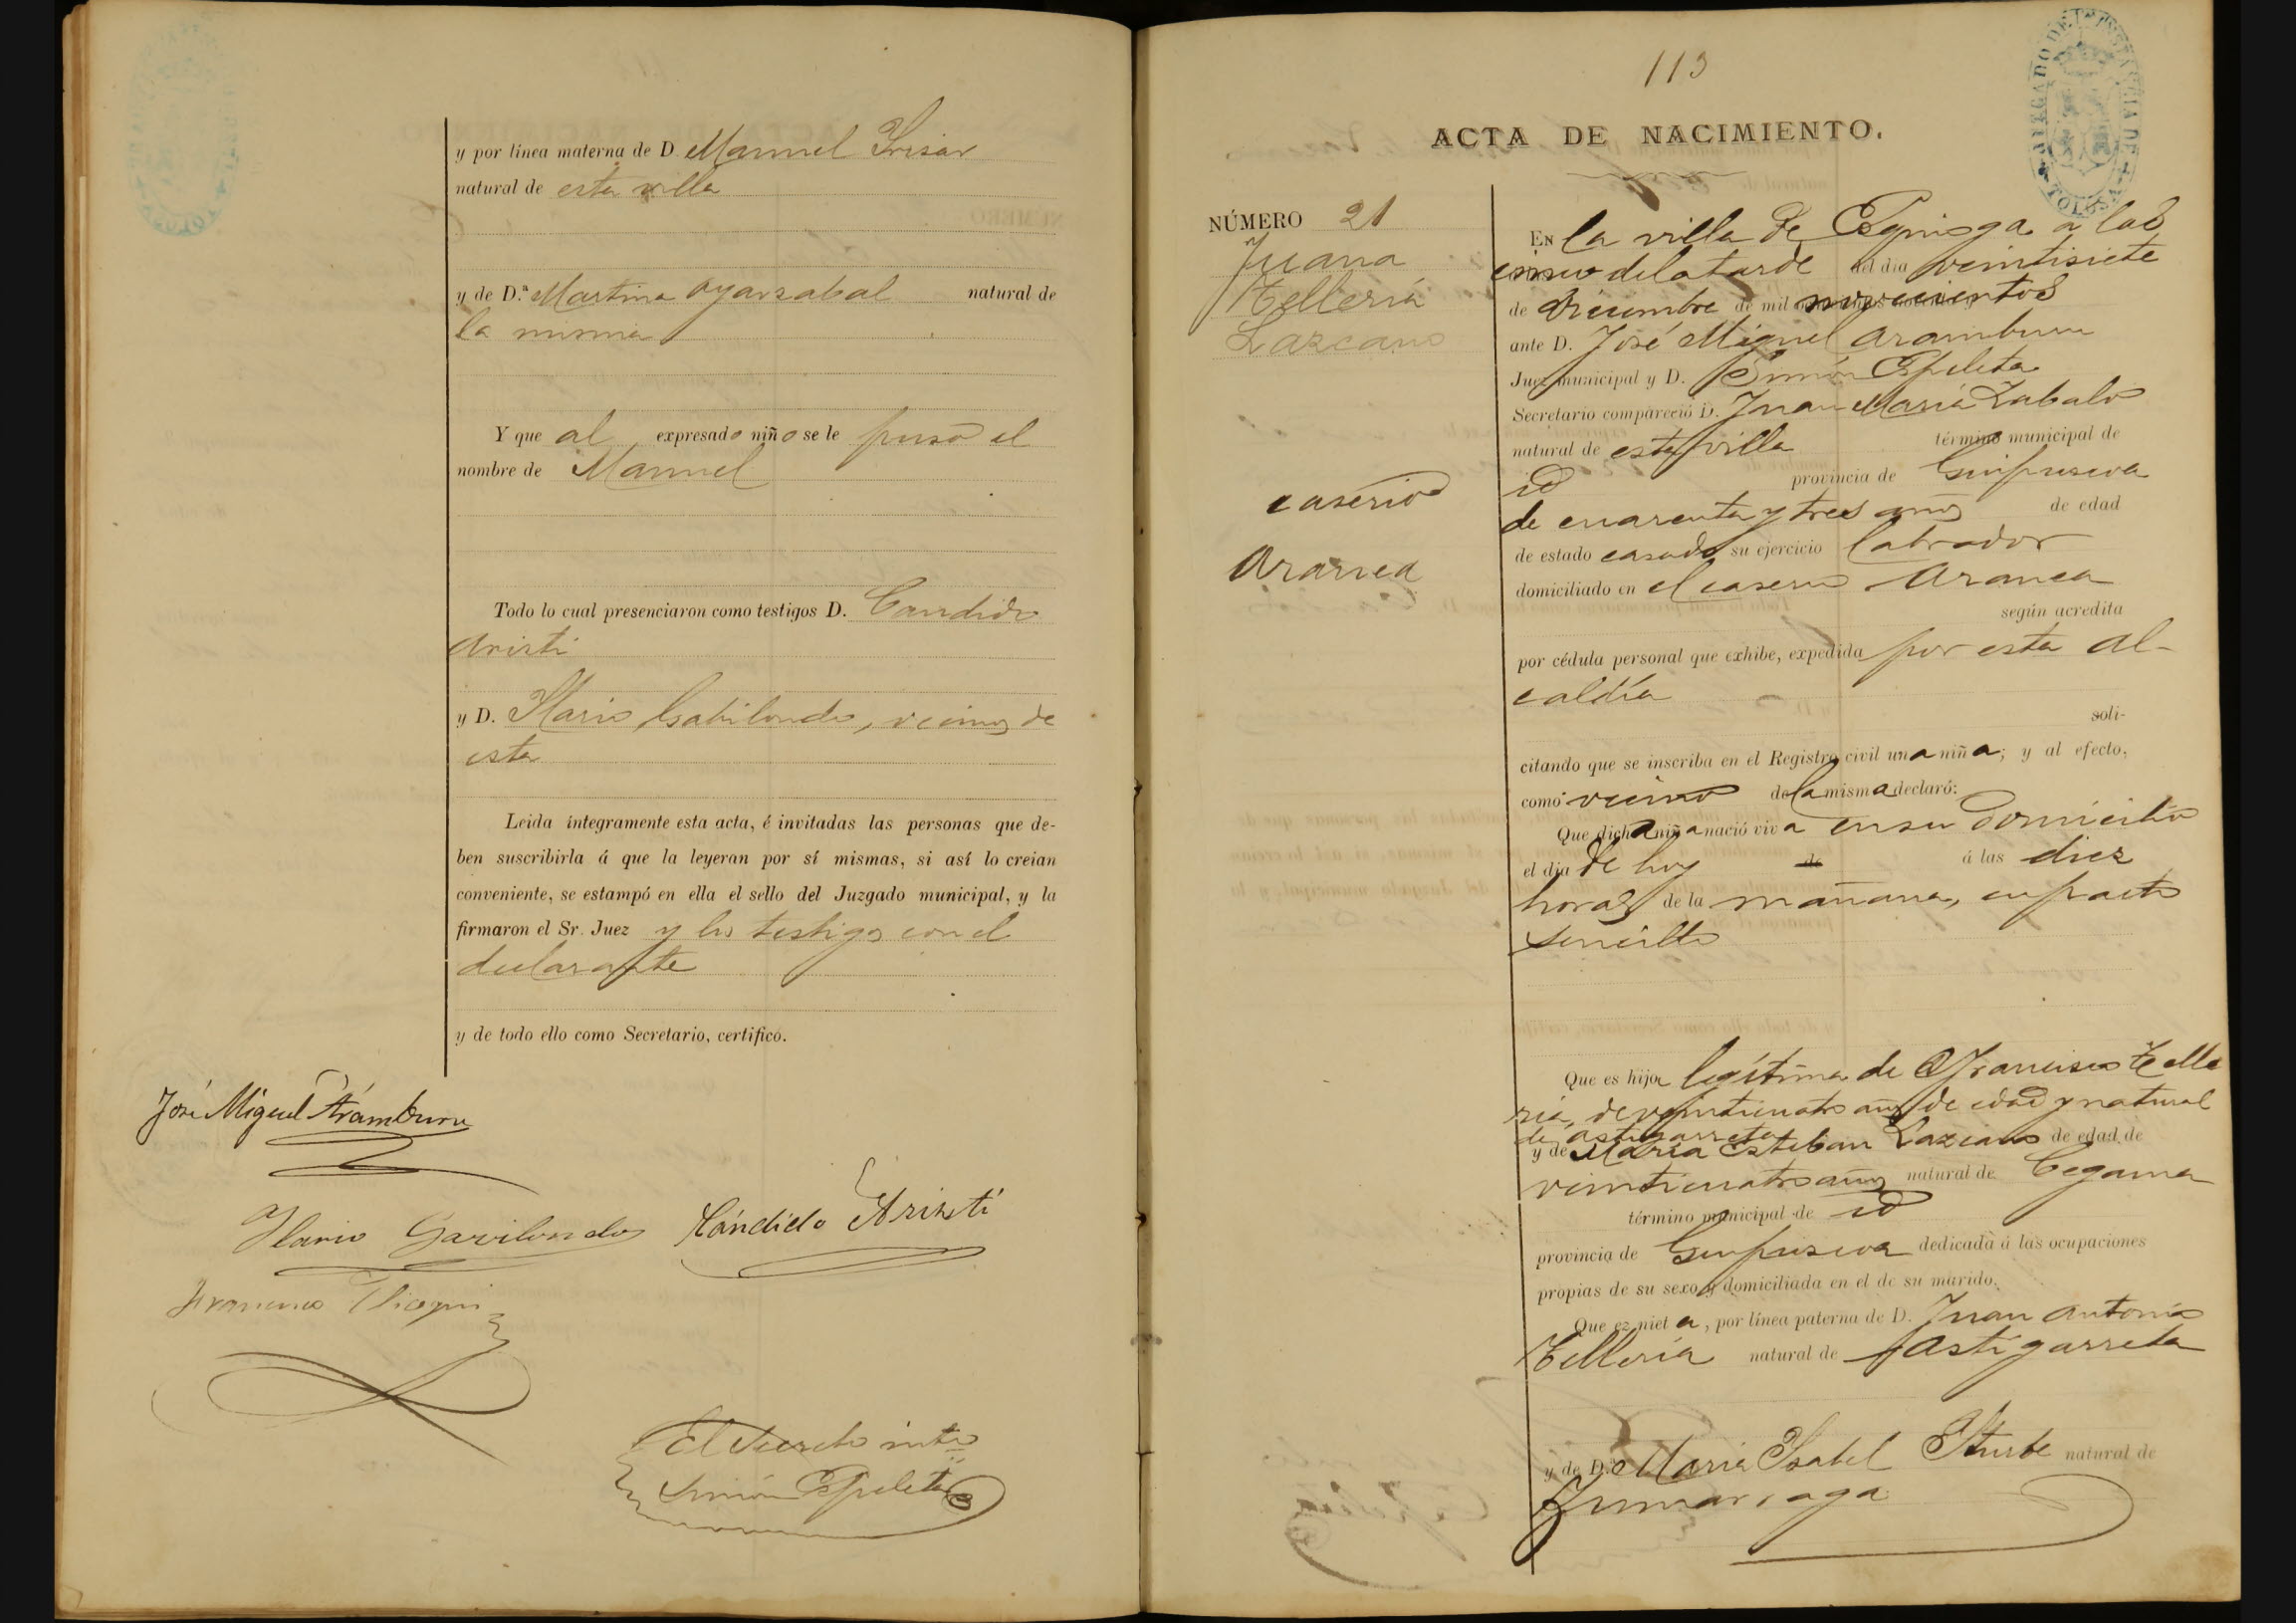 y por línea materna de D. Manuel Irisar
natural de esta villa
y de D.ª Martina Oyarzabal natural de
la misma
Y que al expresado niño se le puso el
nombre de Manuel
Todo lo cual presenciaron como testigos D. Candido
Aristi
y D. Ilario Gabilondo, vecinos de
esta
Leida íntegramente esta acta, é invitadas las personas que de-
ben suscribirla á que la leyeran por sí mismas, si así lo creian
conveniente, se estampó en ella el sello del Juzgado municipal, y la
firmaron el Sr. Juez y los testigos con el
declarante
y de todo ello como Secretario, certifico.
José Miguel Arámburu
Ilario Gavilondo Cándido Aristi
Francisco
El Secreto into
Simón Espeleta
113
JUZGADO DE 1ª INSTANCIA DE TOLOSA
ACTA DE NACIMIENTO.
NÚMERO 21
Juana
Tellería
Lazcano
caserio
Aranea
En la villa de Ezquioga a las
cinco de la tarde del dia veintisiete
de diciembre de mil novecientos
ante D. José Miguel Aramburu
Juez municipal y D. Simón Espeleta
Secretario compareció D. Juan María Zabalo
natural de esta villa término municipal de
id provincia de Guipuscoa
de cuarenta y tres años de edad
de estado casado su ejercicio labrador
domiciliado en el caserio Aranea
según acredita
por cédula personal que exhibe, expedida por esta Al-
caldía
soli-
citando que se inscriba en el Registro civil una niña; y al efecto,
como vecino de la misma declaró:
Que dicha niña nació viva en su domicilio
el dia de hoy de á las diez
horas de la mañana, en parto
sencillo
Que es hija legítima de Francisco Telle
ria, de veinticuatro años de edad y natural
de Astigarreta
y de María Esteban Lazcano de edad de
veinticuatro años natural de Cegama
término municipal de id
provincia de Guipuscoa dedicada á las ocupaciones
propias de su sexo y domiciliada en el de su marido.
Que ez nieta, por línea paterna de D. Juan Antonio
Tellería natural de Astigarreta
y de D.ª Maria Isabel Iturbe natural de
Zumarraga